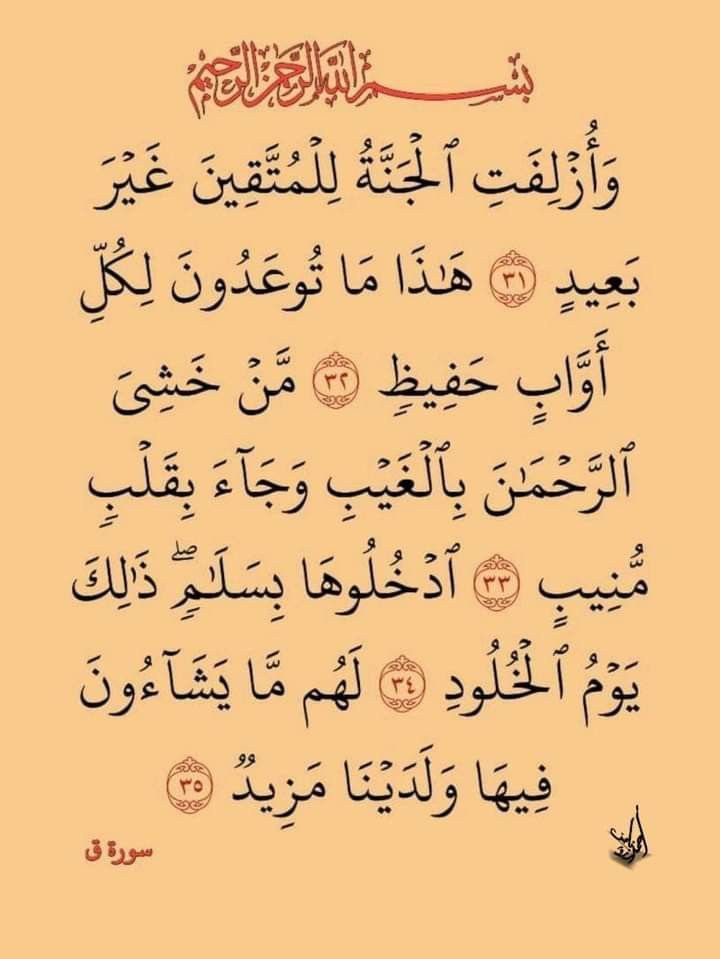 بسم الله الرحمن الرحيم
وَأُزْلِفَتِ ٱلْجَنَّةُ لِلْمُتَّقِينَ غَيْرَ
بَعِيدٍ ٣١ هَٰذَا مَا تُوعَدُونَ لِكُلِّ
أَوَّابٍ حَفِيظٍ ٣٢ مَّنْ خَشِىَ
ٱلرَّحْمَٰنَ بِٱلْغَيْبِ وَجَآءَ بِقَلْبٍ
مُّنِيبٍ ٣٣ ٱدْخُلُوهَا بِسَلَٰمٍ ۖ ذَٰلِكَ
يَوْمُ ٱلْخُلُودِ ٣٤ لَهُم مَّا يَشَآءُونَ
فِيهَا وَلَدَيْنَا مَزِيدٌ ٣٥
سورة ق